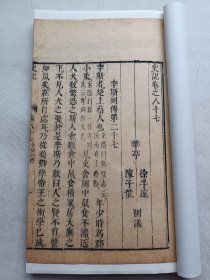 史記卷之八十七
華亭 徐孚遠 陳子龍 測議
李斯列傳第二十七
李斯者楚上蔡人也 年少時爲郡
小吏 見吏舍廁中鼠食不潔近
人犬數驚恐之斯入倉觀倉中鼠食積粟居大廡之
下不見人犬之憂於是李斯乃歎曰人之賢不肖譬
如鼠矣在所自處耳乃從荀卿學帝王之術學已成
史記